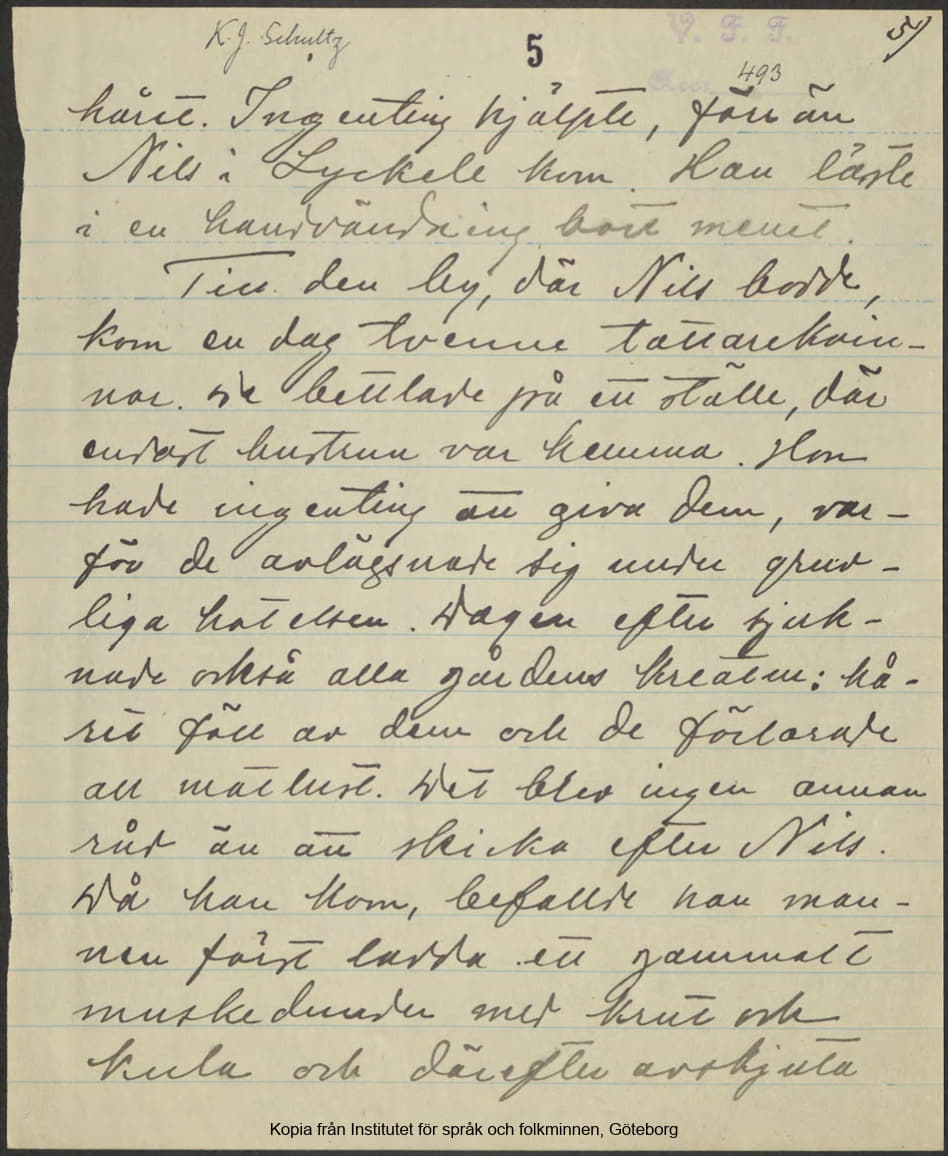 K. J. Schultz
5
V. F. F.
5)
493
håret. Ingenting hjälpte, förr än
Nils i Lyckele kom. Han läste
i en handvändning bort menet.
Till den by, där Nils bodde,
kom en dag tvenne tattarekvin-
nor. De bettlade på ett ställe, där
endast hustrun var hemma. Hon
hade ingenting att giva dem, var-
för de avlägsnade sig under gruv-
liga hotelser. Dagen efter sjuk-
nade också alla gårdens kreatur: hå-
ret föll av dem och de förlorade
all matlust. Det blev ingen annan
råd än att skicka efter Nils.
Då han kom, befallde han man-
nen först ladda ett gammalt
muskedunder med krut och
kula och därefter avskjuta
Kopia från Institutet för språk och folkminnen, Göteborg